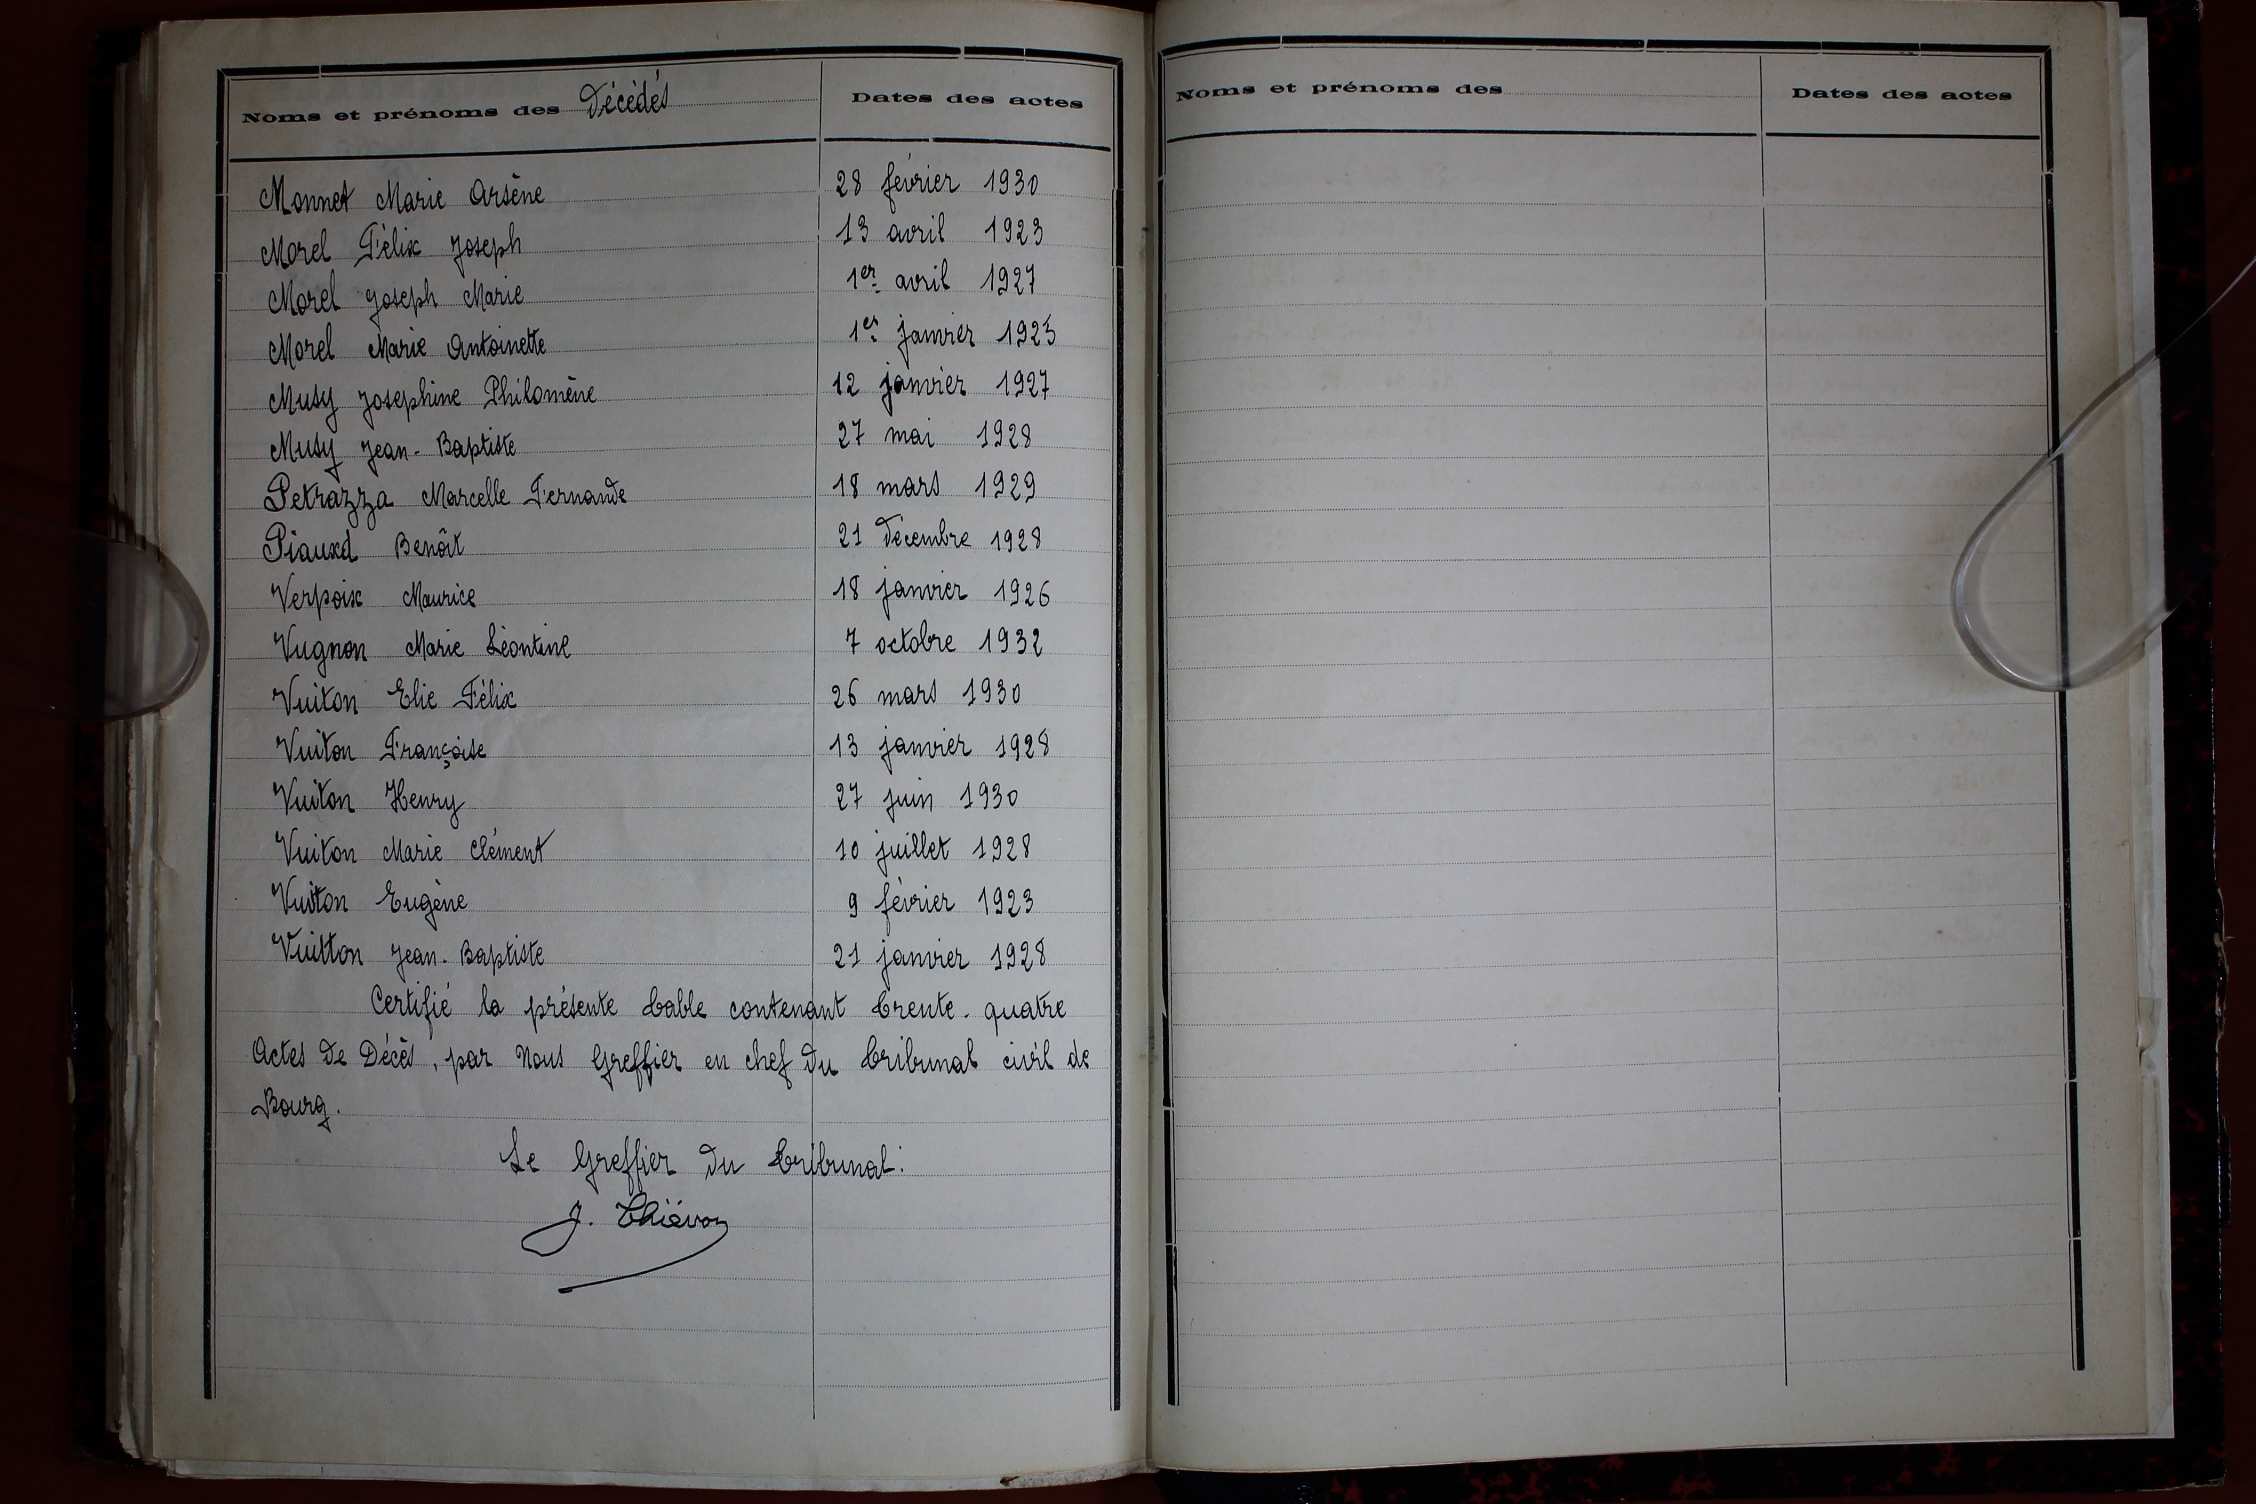 Noms et prénoms des Décédés Dates des actes
Monnet Marie Arsène 28 février 1930
Morel Félix Joseph 13 avril 1923
Morel Joseph Marie 1er avril 1927
Morel Marie Antoinette 1er janvier 1925
Musy Josephine Philomène 12 janvier 1927
Musy Jean-Baptiste 27 mai 1928
Petrazza Marcelle Fernande 18 mars 1929
Piauxd Benôit 21 Décembre 1928
Verpoix Maurice 18 janvier 1926
Vugnon Marie Léontine 7 octobre 1932
Vuiton Elie Félix 26 mars 1930
Vuiton Françoise 13 janvier 1928
Vuiton Henry 27 juin 1930
Vuiton Marie Clément 10 juillet 1928
Vuiton Eugène 9 février 1923
Vuitton Jean-Baptiste 21 janvier 1928
Certifié la présente table contenant trente-quatre
Actes de Décès, par Nous Greffier en chef du tribunal civil de
Bourg.
Le Greffier du tribunal:
J. Thiévon
Noms et prénoms des Dates des actes